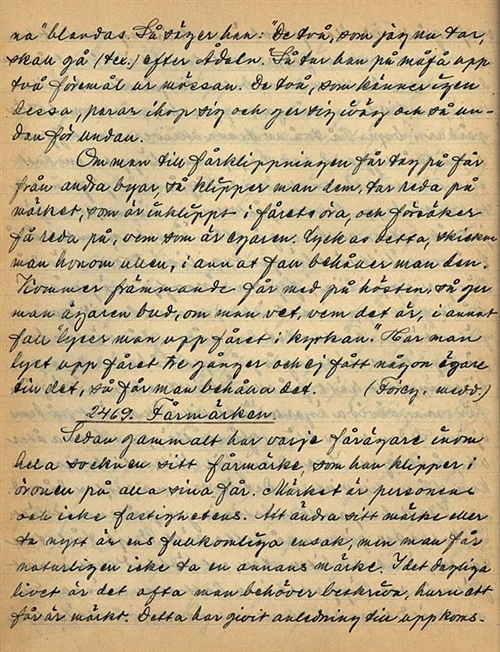 na" blandas. Så säger han: "De två, som jag nu tar,
skall gå (tex.) efter Ådeln. "Så tar han på måfå upp
två föremål ur mössan. De två, som känner igen
dessa, parar ihop sig och ger sig iväg och så un-
dan för undan.
Om man till fårklippningen får tag på får
från andra byar, så klipper man dem, tar reda på
märket, som är inklippt i fårets öra, och försöker
få reda på, vem som är ägaren. Lyckas detta, skickar
man honom ullen, i annat fall behåller man den.
Kommer främmande får med på hösten, så ger
man ägaren bud, om man vet, vem det är, i annat
fall "lyses man upp fåret i kyrkan." Har man
lyst upp fåret tre gånger och ej fått någon ägare
till det, så får man behålla det. (Förcg. medd.)
2469. Fårmärken.
Sedan gammalt har varje fårägare inom
hela socknen sitt fårmärke, som han klipper i
öronen på alla sina får. Märket är personens
och icke fastighetens. Att ändra sitt märke eller
ta nytt är ens fullkomliga ensak, men man får
naturligen icke ta en annans märke. I det dagliga
livet är det ofta man behöver beskriva, huru ett
får är märkt. Detta har givit anledning till uppkoms-